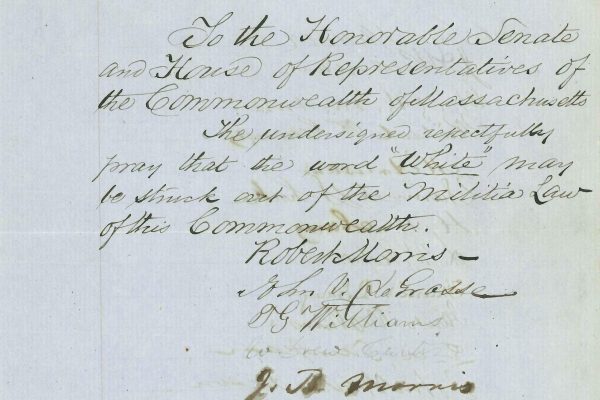 To the Honorable Senate
and House of Representatives of
the Commonwealth of Massachusetts
The undersigned respectfully
pray that the word "White" may
be struck out of the Militia Law
of this Commonwealth.
Robert Morris –
John V. DeGrasse
T G Williams
J. B. Morris